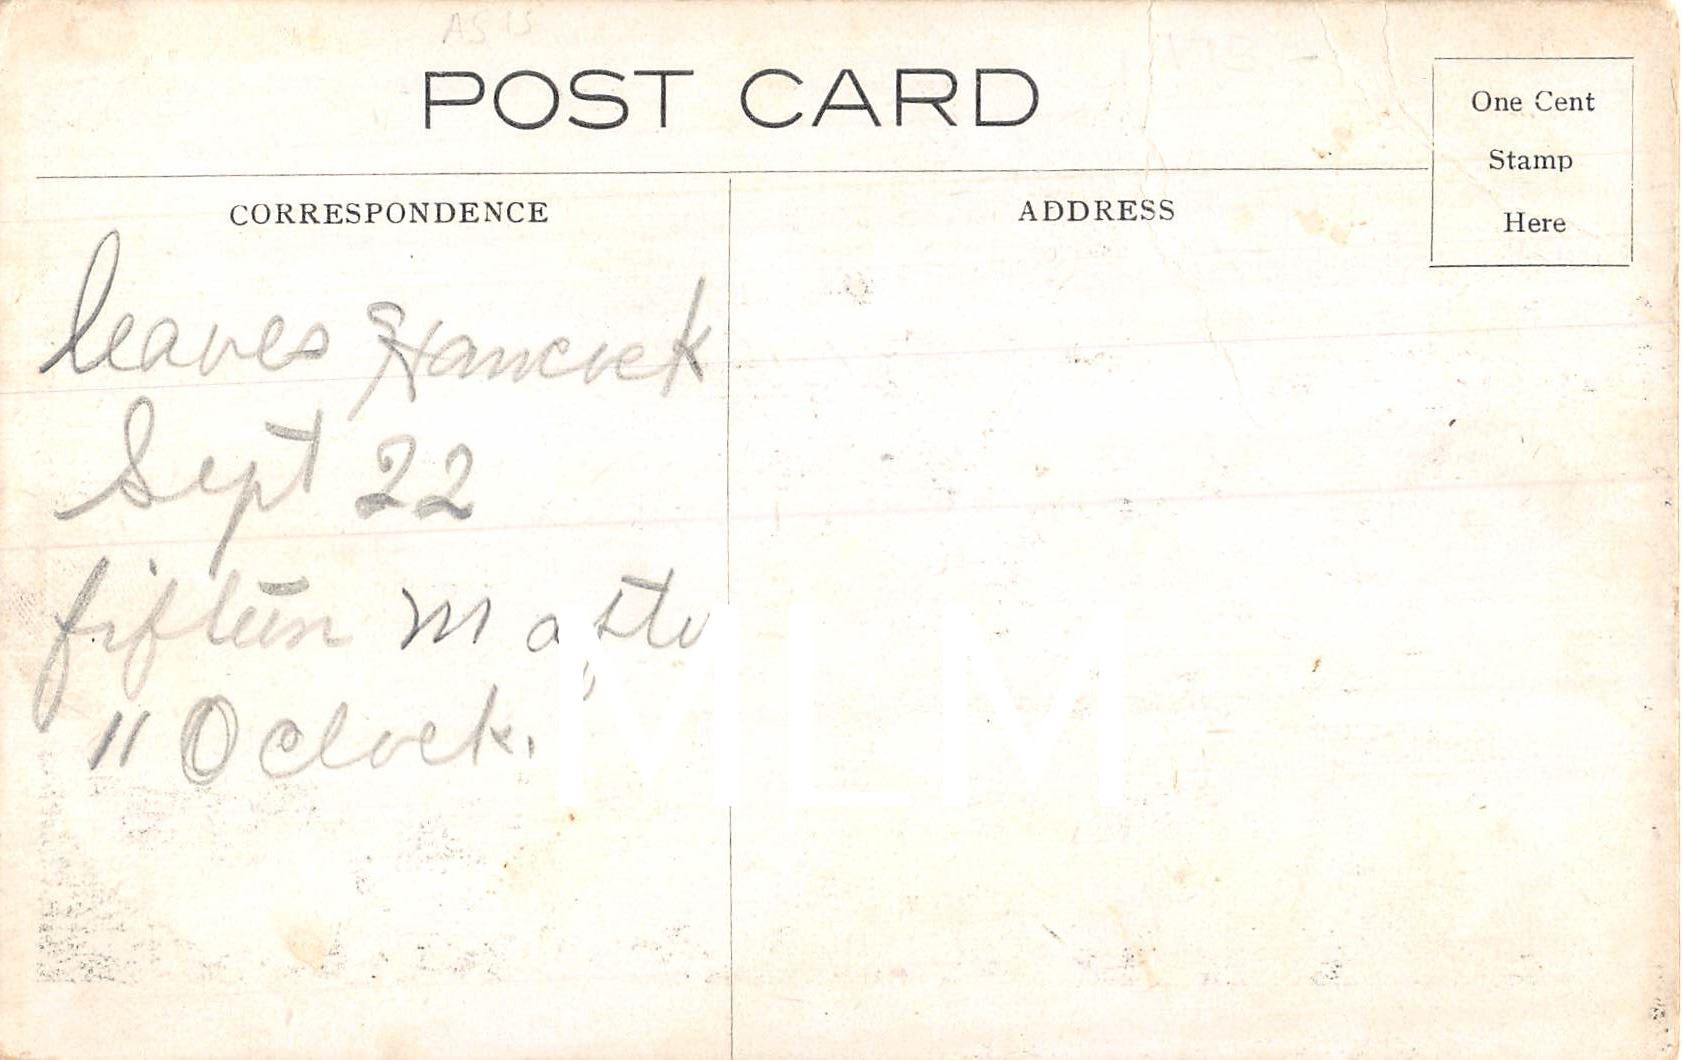 AS IS
POST CARD
One Cent
Stamp
Here
CORRESPONDENCE
ADDRESS
leaves Hancock
Sept 22
fifteen M
11 O clock.
MLM